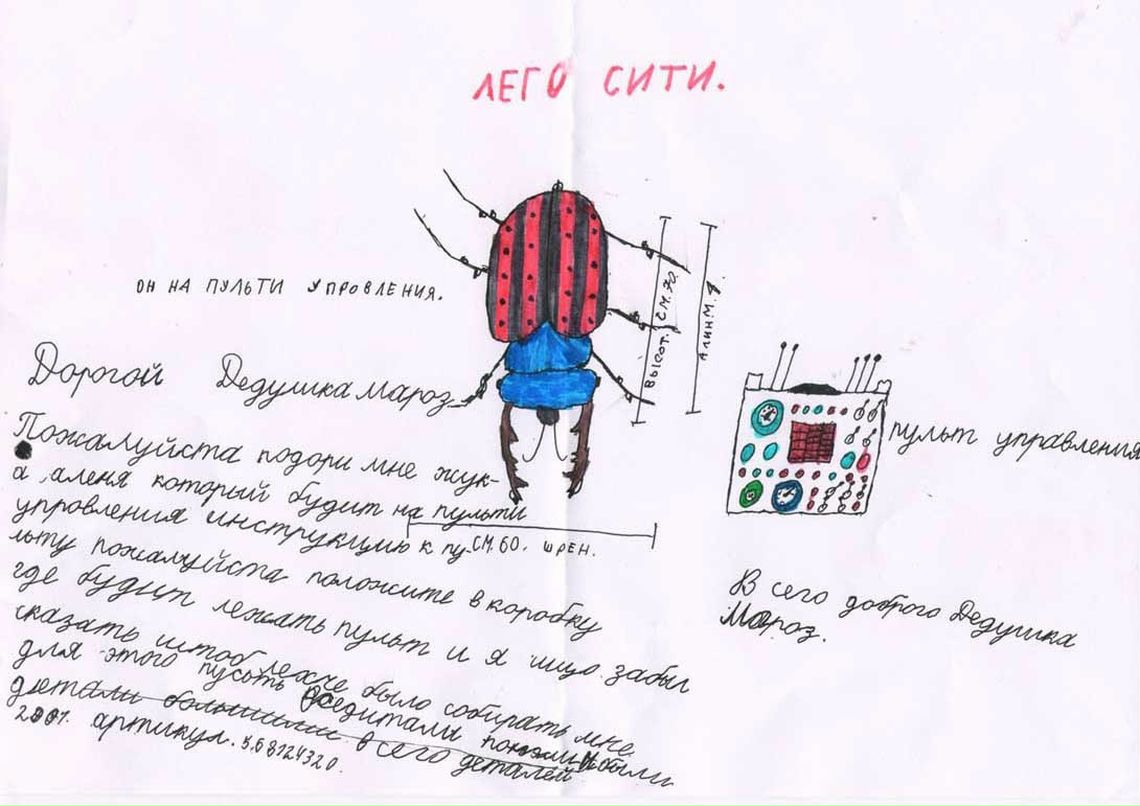 ЛЕГО СИТИ.
ОН НА ПУЛЬТИ УПРОВЛЕНИЯ.
ВЫСОТ. СМ. 70.
ДЛИН М. 1.
Дорогой Дедушка мароз
Пожалуйста подори мне жук-
а, аленя который будит на пульти
упровления инструкцию к пу-
льту пожалуйста положите в коробку
где будит лежать пульт и я ищо забыл
сказать штоб легче было собирать мне
для этого пусть все дитали были
детали большими всего деталей
2001. артикул. 3.68124320.
СМ. 60. ШРЕН.
пульт управления
Всего доброго Дедушка
Мороз.